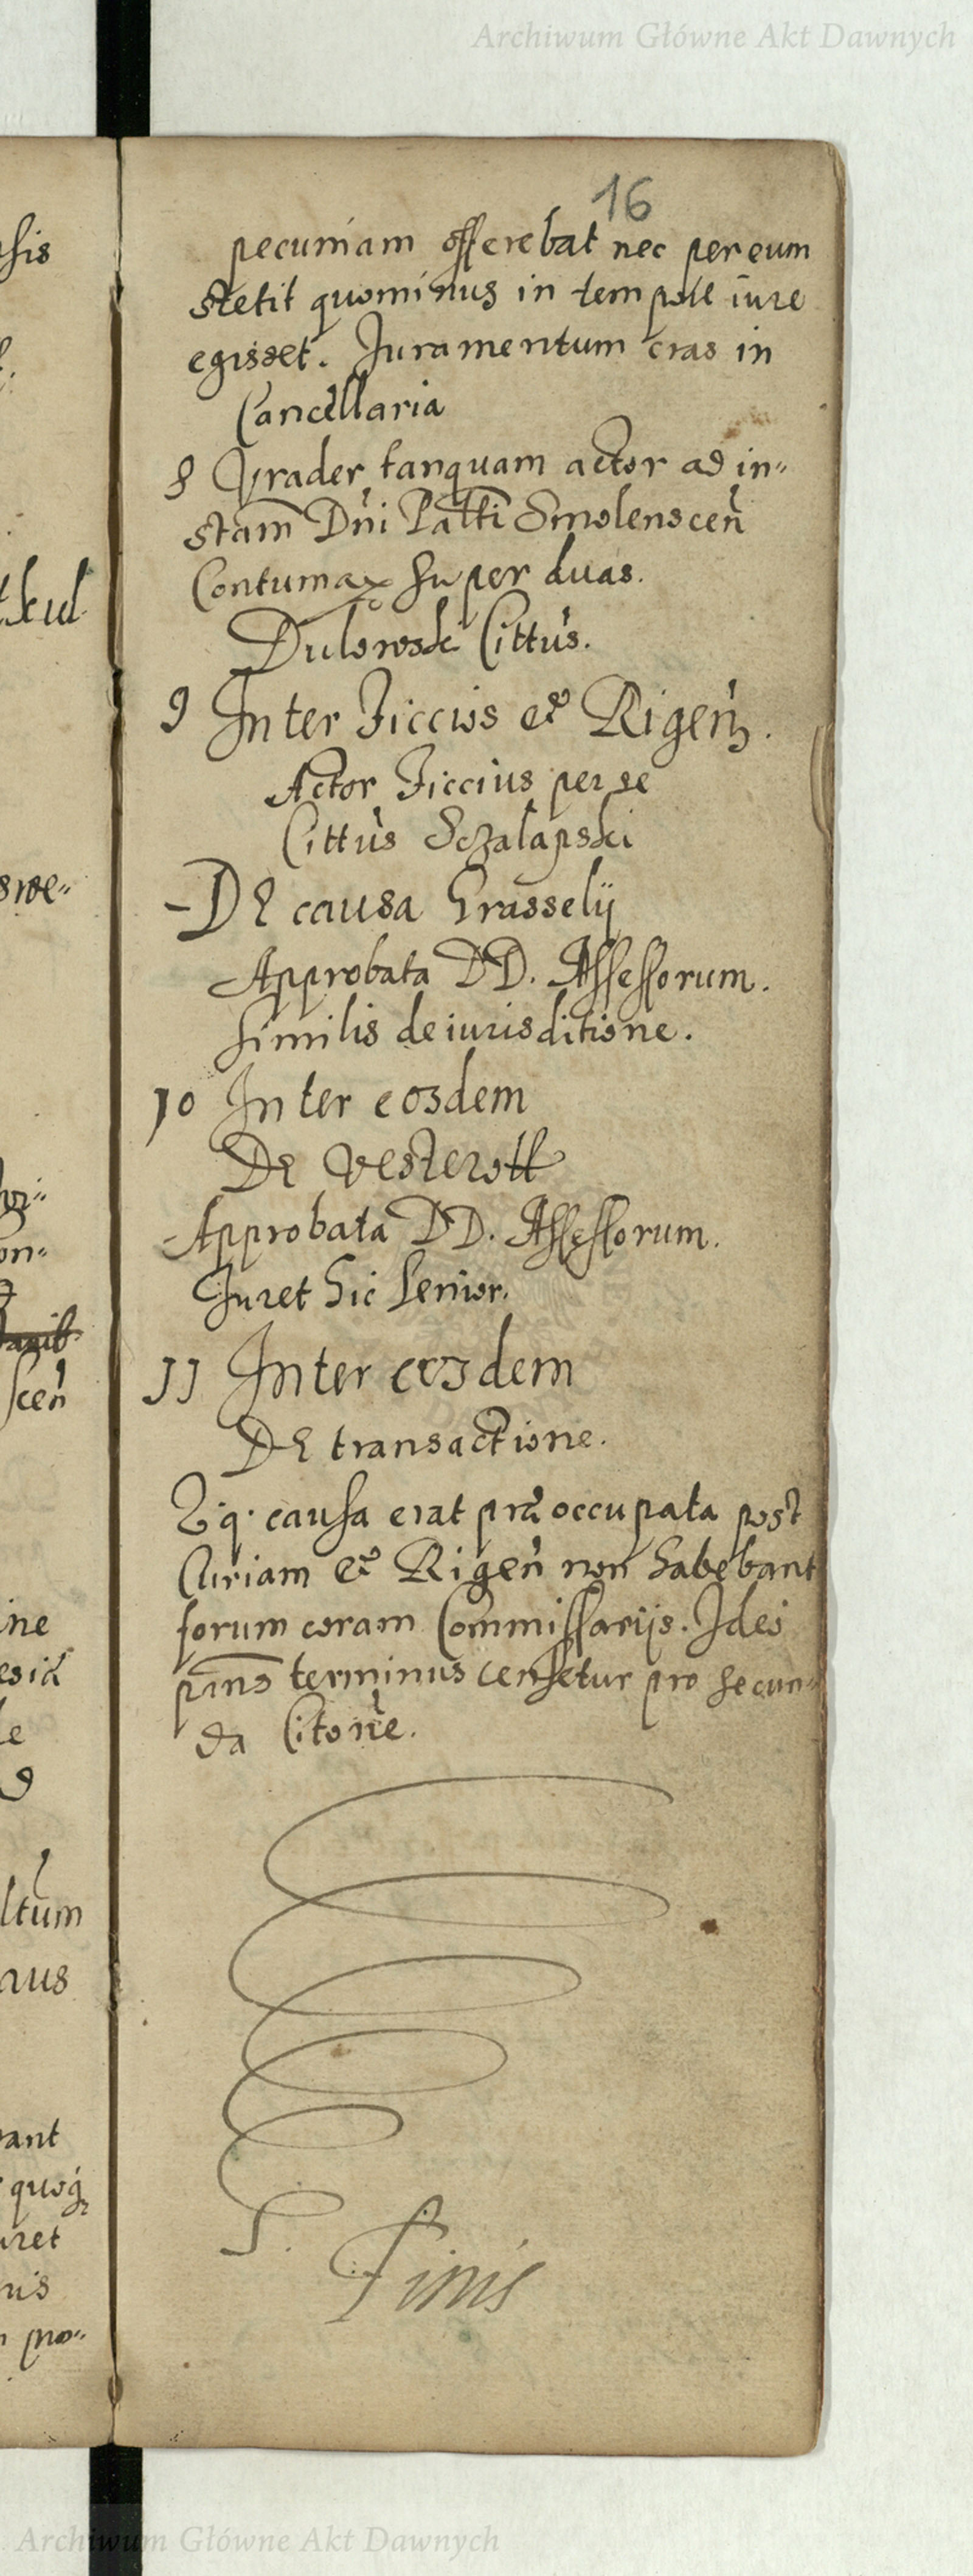 Archiwum Główne Akt Dawnych
16
pecuniam offerebat nec per eum
stetit quominus in tempore iure
egisset. Juramentum cras in
Cancellaria
8 Vrader tanquam actor ad in-
stam Dni Palti Smolenscen
Contumax super duas.
Dulowski Cittus.
9 Inter Ficcios et Rigen.
Actor Ficcius per se
Cittus Sczalapski
- De causa Grasselij
Approbata DD. Assessorum.
Similis de iurisditione.
10 Inter eosdem
De Vesterott
- Approbata DD. Assessorum.
Juret hic Senior.
11 Inter eosdem
De transactione.
causa erat præoccupata post
Curiam et Rigen non habebant
forum coram Commissarijs. Ideo
pns terminus censetur pro secun-
da Citone.
Finis
Archiwum Główne Akt Dawnych